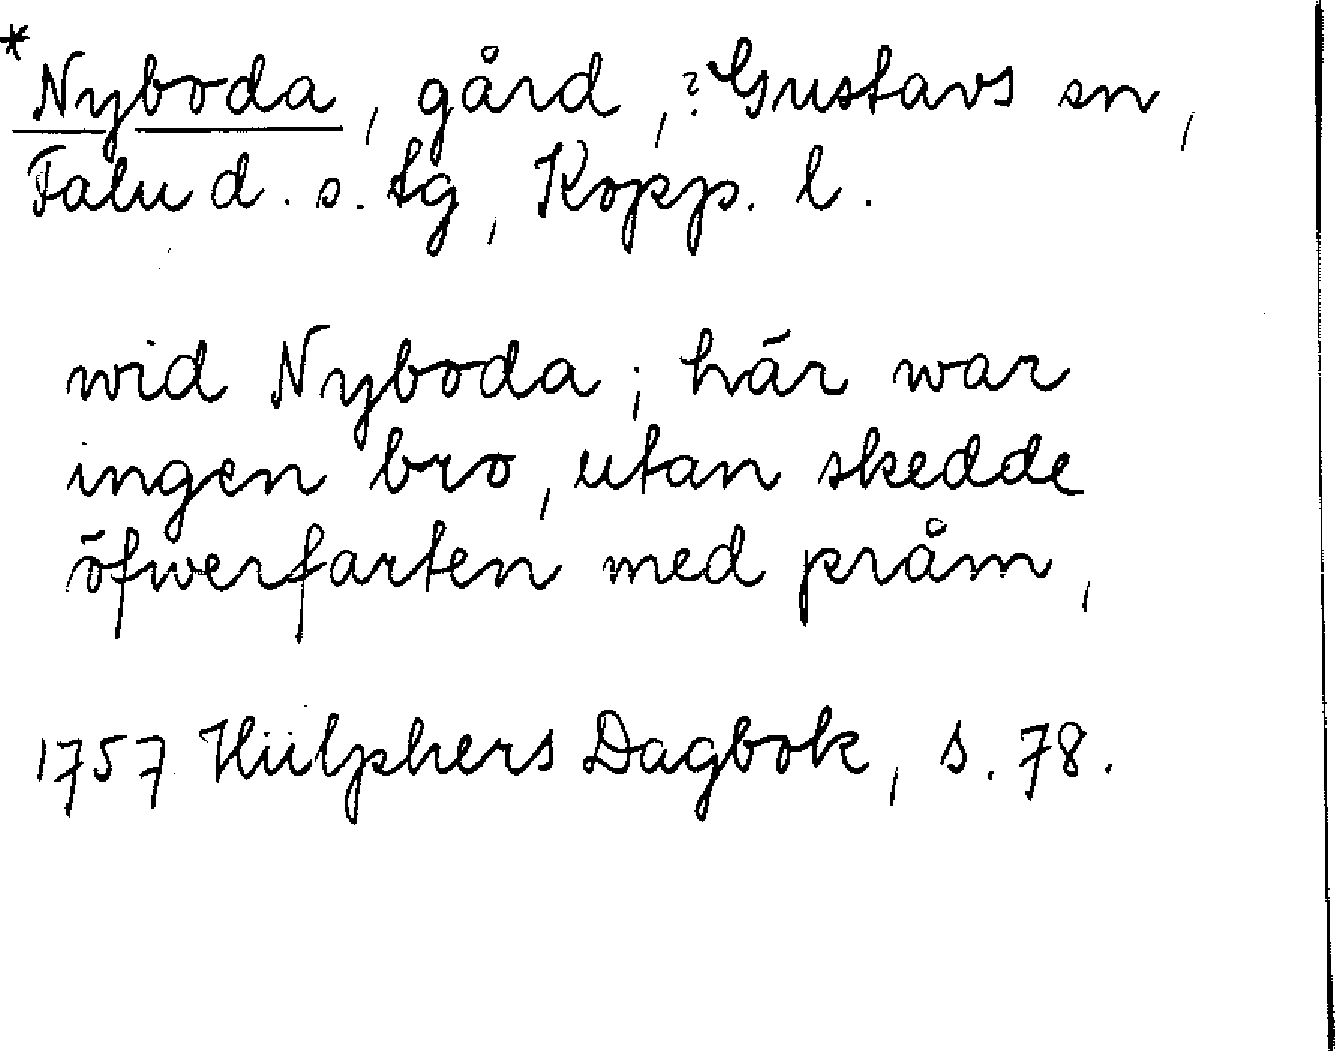 *Nyboda, gård, ? Gustavs sn,
Falu d. s. tg, Kopp. l.
wid Nyboda; här war
ingen bro, utan skedde
öfwerfarten med pråm,
1757 Hülphers Dagbok, s. 78.